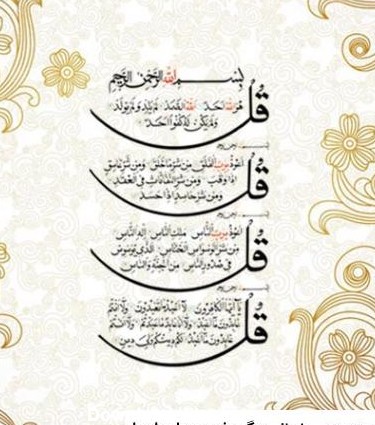 بسم الله الرحمن الرحيم
قل
هو الله احد الله الصمد لم يلد ولم يولد
ولم يكن له كفوا احد
قل
اعوذ برب الفلق من شر ما خلق ومن شر غاسق
اذا وقب ومن شر النفاثات في العقد
ومن شر حاسد اذا حسد
قل
اعوذ برب الناس ملك الناس اله الناس
من شر الوسواس الخناس الذي يوسوس
في صدور الناس من الجنة والناس
قل
يا ايها الكافرون لا اعبد ما تعبدون ولا انتم
عابدون ما اعبد ولا انا عابد ما عبدتم ولا انتم
عابدون ما اعبد لكم دينكم ولي دين